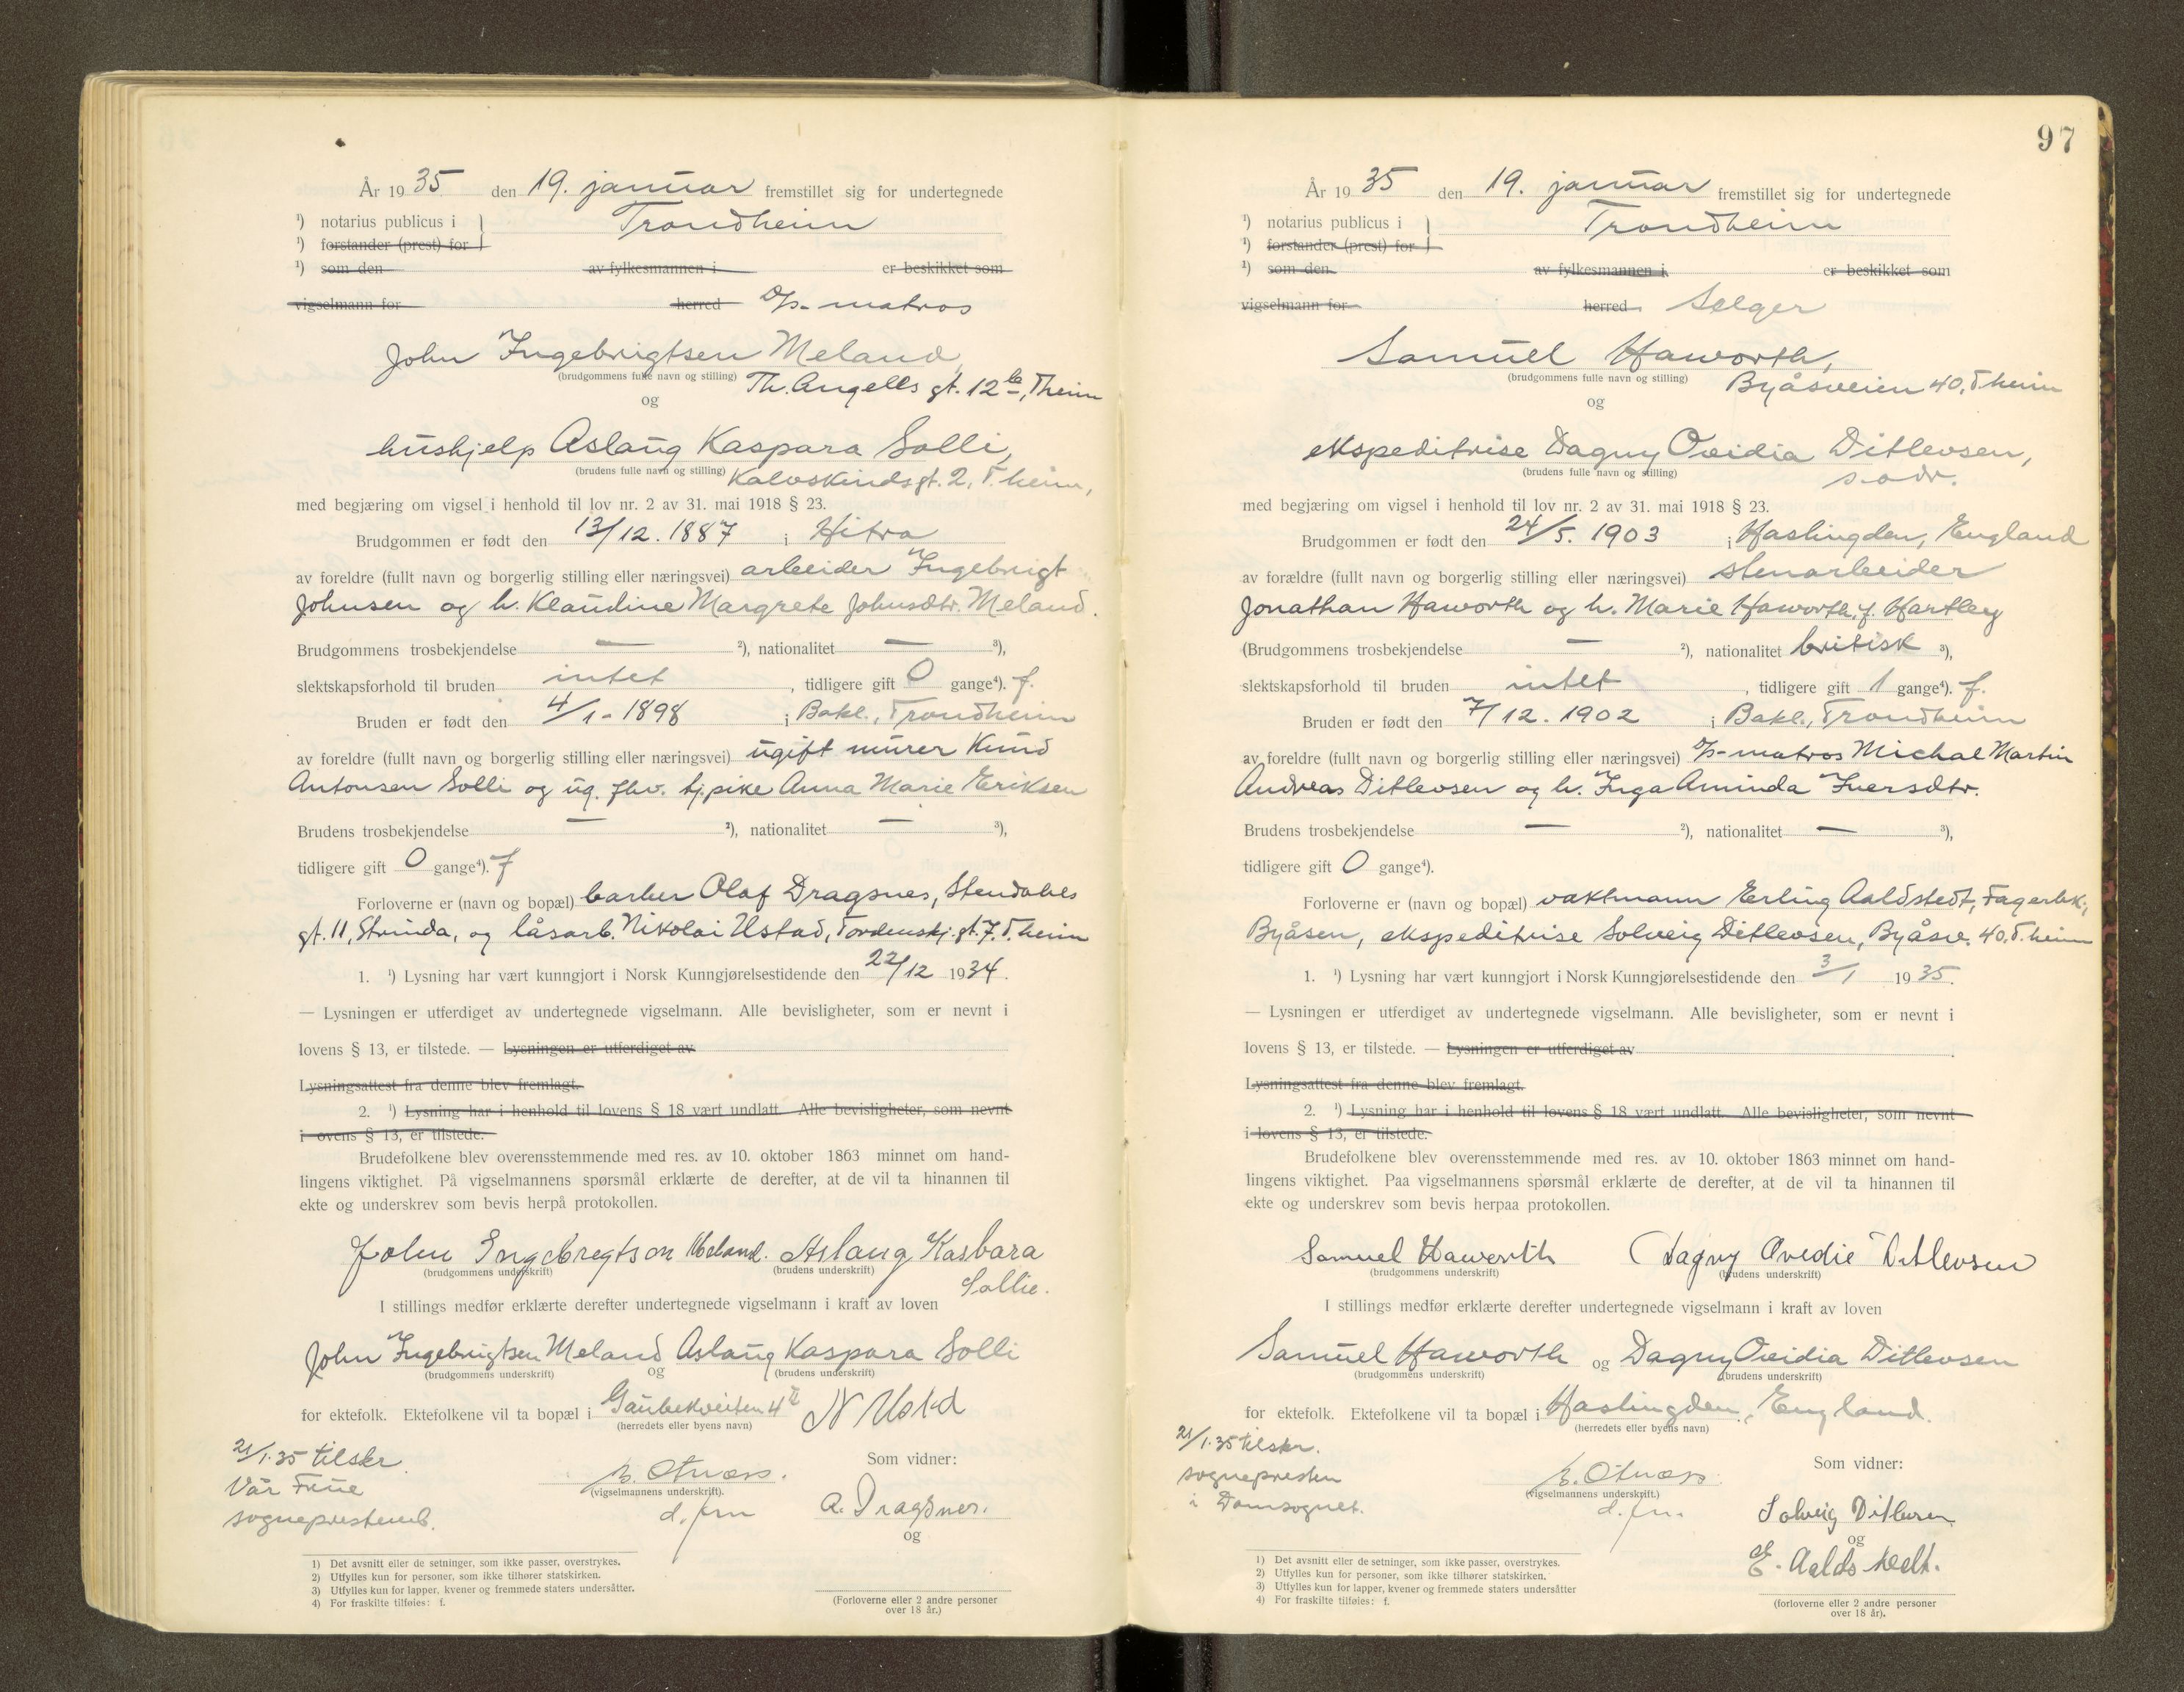 År 19 35 den 19. januar fremstillet sig for undertegnede
¹) notarius publicus i } Trondheim
¹) forstander (prest) for
¹) som den av fylkesmannen i er beskikket som
vigselmann for herred D/s- matros
John Ingebrigtsen Meland,
(brudgommens fulle navn og stilling) Th. Angells gt. 12 b, T.heim
og
hushjelp Aslaug Kaspara Solli,
(brudens fulle navn og stilling) Kalvskindsgt. 2, T.heim,
med begjæring om vigsel i henhold til lov nr. 2 av 31. mai 1918 § 23.
Brudgommen er født den 13/12. 1887 i Hitra
av foreldre (fullt navn og borgerlig stilling eller næringsvei) arbeider Ingebrigt
Johnsen og h. Klaudine Margrete Johnsdtr. Meland.
Brudgommens trosbekjendelse — ²), nationalitet — ³),
slektskapsforhold til bruden intet, tidligere gift 0 gange⁴). f.
Bruden er født den 4/1- 1898 i Bakl., Trondheim
av foreldre (fullt navn og borgerlig stilling eller næringsvei) ugift murer Knud
Antonsen Solli og ug. fhv. tj.pike Anna Marie Eriksen
Brudens trosbekjendelse — ²), nationalitet — ³),
tidligere gift 0 gange⁴). f
Forloverne er (navn og bopæl) barber Olaf Dragsnes, Stendahls
gt. 11, Strinda, og låsarb. Nikolai Ustad, Tordenskj. gt. 7. T.heim
1. ¹) Lysning har vært kunngjort i Norsk Kunngjørelsestidende den 22/12 1934.
— Lysningen er utferdiget av undertegnede vigselmann. Alle bevisligheter, som er nevnt i
lovens § 13, er tilstede. — Lysningen er utferdiget av
Lysningsattest fra denne blev fremlagt.
2. ¹) Lysning har i henhold til lovens § 18 vært undlatt. Alle bevisligheter, som nevnt
i ovens § 13, er tilstede.
Brudefolkene blev overensstemmende med res. av 10. oktober 1863 minnet om hand-
lingens viktighet. På vigselmannens spørsmål erklærte de derefter, at de vil ta hinannen til
ekte og underskrev som bevis herpå protokollen.
John Ingebregtson Meland. Aslaug Kasbara
(brudgommens underskrift) (brudens underskrift)
Sollie.
I stillings medfør erklærte derefter undertegnede vigselmann i kraft av loven
John Ingebrigtsen Meland Aslaug Kaspara Solli
(brudgommens underskrift) og (brudens underskrift)
for ektefolk. Ektefolkene vil ta bopæl i Gaubekveiten 4 N Ustad
(herredets eller byens navn)
21/1.35 tilskr. Som vidner:
Vår Frue
(vigselmannens underskrift).
sogneprestemb. d. fm A. Dragsnes.
og
1) Det avsnitt eller de setninger, som ikke passer, overstrykes.
2) Utfylles kun for personer, som ikke tilhører statskirken.
3) Utfylles kun for lapper, kvener og fremmede staters undersåtter.
4) For fraskilte tilføies: f.
(Forloverne eller 2 andre personer
over 18 år.)
97
År 19 35 den 19. januar fremstillet sig for undertegnede
¹) notarius publicus i } Trondheim
¹) forstander (prest) for
¹) som den av fylkesmannen i er beskikket som
vigselmann for herred Selger
Samuel Haworth,
(brudgommens fulle navn og stilling) Byåsveien 40, T.heim
og
ekspeditrise Dagny Ovidia Ditlevsen,
(brudens fulle navn og stilling) s. adr.
med begjæring om vigsel i henhold til lov nr. 2 av 31. mai 1918 § 23.
Brudgommen er født den 24/5. 1903 i Haslingden, England
av forældre (fullt navn og borgerlig stilling eller næringsvei) stenarbeider
Jonathan Haworth og h. Marie Haworth, f. Hartley
(Brudgommens trosbekjendelse — ²), nationalitet britisk ³),
slektskapsforhold til bruden intet, tidligere gift 1 gange⁴). f.
Bruden er født den 7/12. 1902 i Bakl., Trondheim
av foreldre (fullt navn og borgerlig stilling eller næringsvei) D/s-matros Michal Martin
Andreas Ditlevsen og h. Inga Aminda Iversdtr.
Brudens trosbekjendelse — ²), nationalitet — ³),
tidligere gift 0 gange⁴).
Forloverne er (navn og bopæl) vaktmann Erling Aaldstedt, Fagerbk.,
Byåsen, ekspeditrise Solveig Ditlevsen, Byåsv. 40. T.heim
1. ¹) Lysning har vært kunngjort i Norsk Kunngjørelsestidende den 3/1 1935.
— Lysningen er utferdiget av undertegnede vigselmann. Alle bevisligheter, som er nevnt i
lovens § 13, er tilstede. — Lysningen er utferdiget av
Lysningsattest fra denne blev fremlagt.
2. ¹) Lysning har i henhold til lovens § 18 vært undlatt. Alle bevisligheter, som nevnt
i lovens § 13, er tilstede.
Brudefolkene blev overensstemmende med res. av 10. oktober 1863 minnet om hand-
lingens viktighet. Paa vigselmannens spørsmål erklærte de derefter, at de vil ta hinannen til
ekte og underskrev som bevis herpaa protokollen.
Samuel Haworth Dagny Ovedie Ditlevsen
(brudgommens underskrift) (brudens underskrift)
I stillings medfør erklærte derefter undertegnede vigselmann i kraft av loven
Samuel Haworth og Dagny Ovidia Ditlevsen
(brudgommens underskrift) (brudens underskrift)
for ektefolk. Ektefolkene vil ta bopæl i Haslingden, England.
(herredets eller byens navn)
21/1.35 tilskr. Som vidner:
sognepresten
(vigselmannens underskrift.)
i Domsognet. d. fm. Solveig Ditlevsen
og
E. Aaldstedt.
1) Det avsnitt eller de setninger, som ikke passer, overstrykes.
2) Utfylles kun for personer, som ikke tilhører statskirken.
3) Utfylles kun for lapper, kvener og fremmede staters undersåtter
4) For fraskilte tilføies: f.
(forloverne eller 2 andre personer
over 18 år).